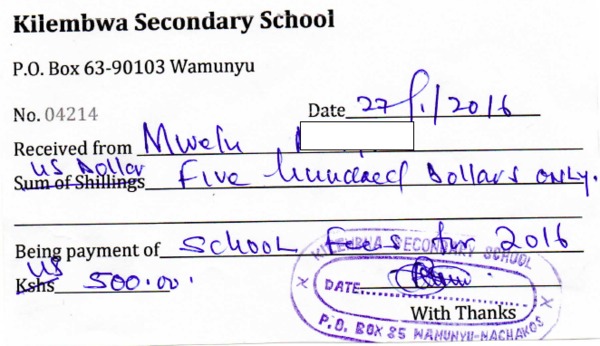 Kilembwa Secondary School
P.O. Box 63-90103 Wamunyu
No. 04214
Date 27/1/2016
Received from Mwelu
US Dollar
Sum of Shillings Five hundred Dollars only.
Being payment of School Fees for 2016
US
Kshs 500.00.
KILEMBWA SECONDARY SCHOOL
DATE
With Thanks
P.O. BOX 85 WAMUNYU-MACHAKOS